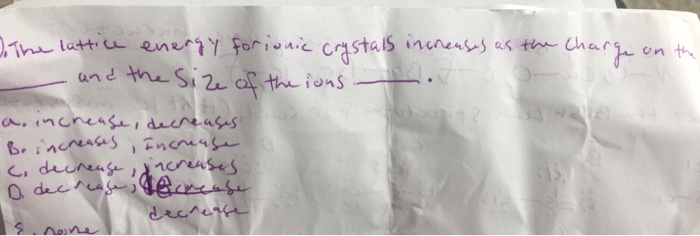 ). The lattice energy for ionic crystals increases as the charge on the
____ and the size of the ions ____.
a. increase, decreases
B. increases, Increase
C. decrease, increases
D. decrease, decrease
decrease
E. none